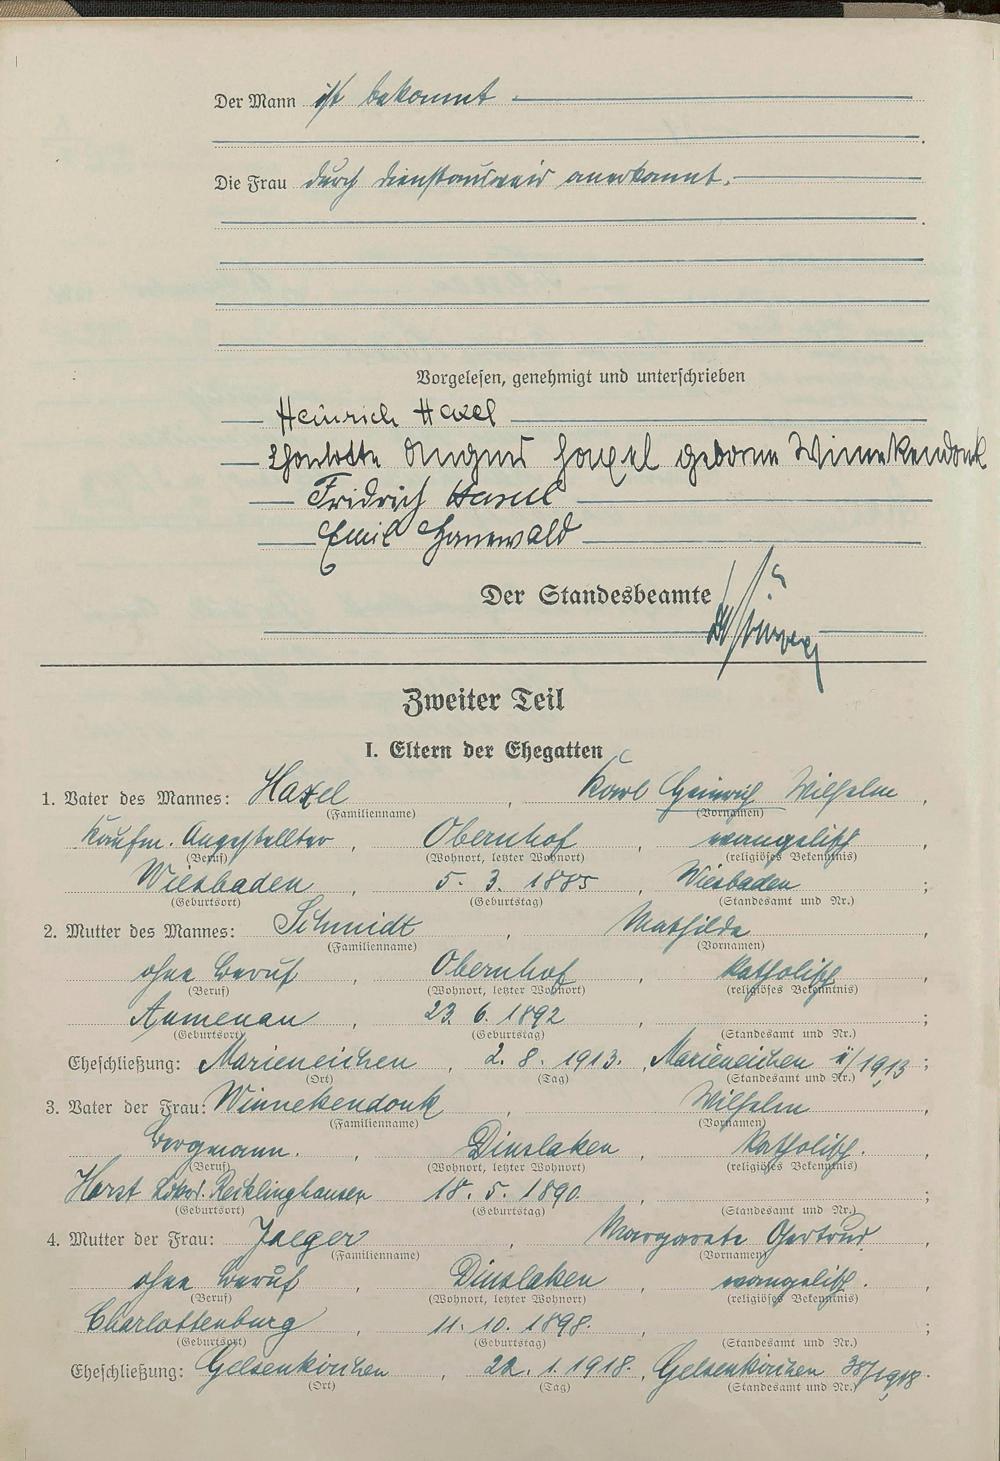 Der Mann ist bekannt
Die Frau durch Dienstausweis anerkannt.
Vorgelesen, genehmigt und unterschrieben
Heinrich Haxel
Charlotte Haxel geborne Winnekendonk
Fridrich Haxel
Emil
Der Standesbeamte
Zweiter Teil
I. Eltern der Ehegatten
1. Vater des Mannes: Haxel, Karl Heinrich Wilhelm,
(Familienname) (Vornamen)
Kaufm. Angestellter, Obernhof, evangelisch
(Beruf) (Wohnort, letzter Wohnort) (religiöses Bekenntnis)
Wiesbaden, 5. 3. 1885, Wiesbaden;
(Geburtsort) (Geburtstag) (Standesamt und Nr.)
2. Mutter des Mannes: Schmidt, Mathilde,
(Familienname) (Vornamen)
ohne Beruf, Obernhof, katholisch,
(Beruf) (Wohnort, letzter Wohnort) (religiöses Bekenntnis)
Aumenau, 23. 6. 1892, ;
(Geburtsort) (Geburtstag) (Standesamt und Nr.)
Eheschließung: Marieneichen, 2. 8. 1913., Marieneichen /1913;
(Ort) (Tag) (Standesamt und Nr.)
3. Vater der Frau: Winnekendonk, Wilhelm,
(Familienname) (Vornamen)
Bergmann., Dinslaken, katholisch.,
(Beruf) (Wohnort, letzter Wohnort) (religiöses Bekenntnis)
Horst Ldkrs. Recklinghausen 18. 5. 1890, ;
(Geburtsort) (Geburtstag) (Standesamt und Nr.)
4. Mutter der Frau: Jaeger, Margarete Gertrud,
(Familienname) (Vornamen)
ohne Beruf, Dinslaken, evangelisch.,
(Beruf) (Wohnort, letzter Wohnort) (religiöses Bekenntnis)
Charlottenburg, 11. 10. 1898., ;
(Geburtsort) (Geburtstag) (Standesamt und Nr.)
Eheschließung: Gelsenkirchen, 22. 1. 1918., Gelsenkirchen 38/1918.
(Ort) (Tag) (Standesamt und Nr.)